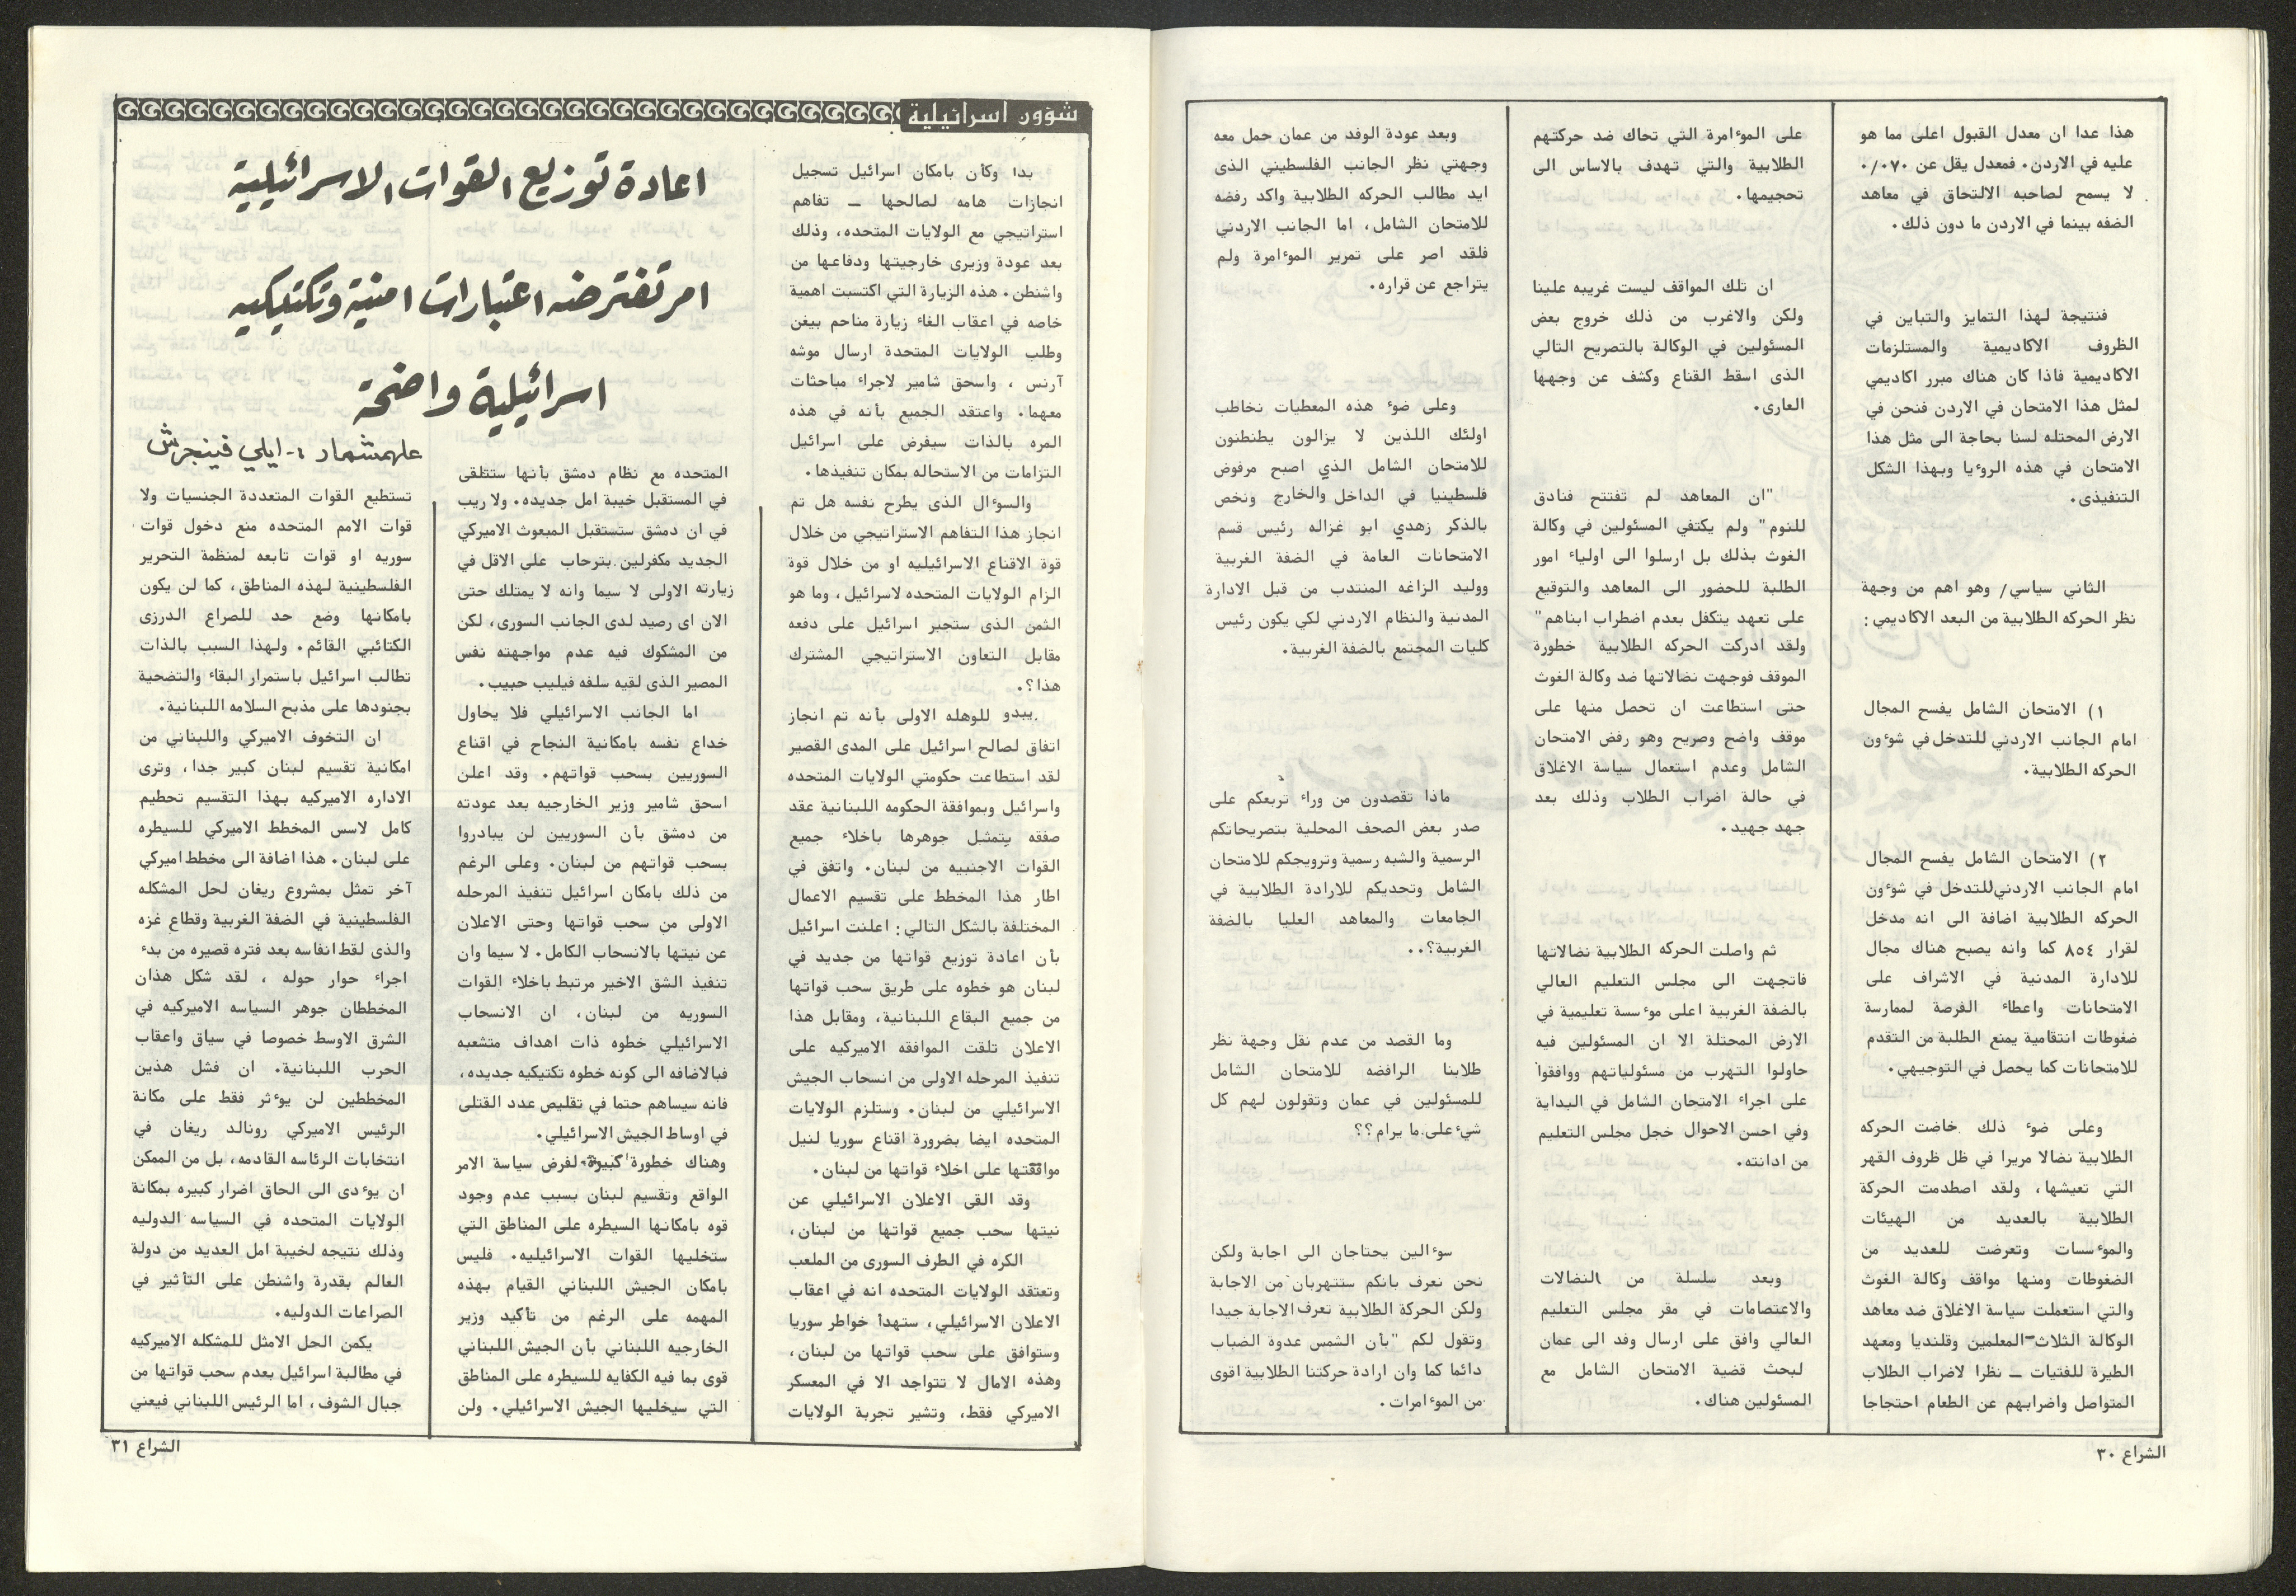 هذا عدا ان معدل القبول اعلى مما هو
عليه في الاردن. فمعدل يقل عن ٠/٠٧٠
لا يسمح لصاحبه الالتحاق في معاهد
الضفه بينما في الاردن ما دون ذلك.
فنتيجة لهذا التمايز والتباين في
الظروف الاكاديمية والمستلزمات
الاكاديمية فاذا كان هناك مبرر اكاديمي
لمثل هذا الامتحان في الاردن فنحن في
الارض المحتله لسنا بحاجة الى مثل هذا
الامتحان في هذه الروءيا وبهذا الشكل
التنفيذى.
الثاني سياسي/ وهو اهم من وجهة
نظر الحركه الطلابية من البعد الاكاديمي:
١) الامتحان الشامل يفسح المجال
امام الجانب الاردني للتدخل في شوءون
الحركه الطلابية.
٢) الامتحان الشامل يفسح المجال
امام الجانب الاردني للتدخل في شوءون
الحركه الطلابية اضافة الى انه مدخل
لقرار ٨٥٤ كما وانه يصبح هناك مجال
للادارة المدنية في الاشراف على
الامتحانات واعطاء الفرصة لممارسة
ضغوطات انتقامية يمنع الطلبة من التقدم
للامتحانات كما يحصل في التوجيهي.
وعلى ضوء ذلك خاضت الحركه
الطلابية نضالا مريرا في ظل ظروف القهر
التي تعيشها، ولقد اصطدمت الحركة
الطلابية بالعديد من الهيئات
والموءسسات وتعرضت للعديد من
الضغوطات ومنها مواقف وكالة الغوث
والتي استعملت سياسة الاغلاق ضد معاهد
الوكالة الثلاث-المعلمين وقلنديا ومعهد
الطيرة للفتيات ـ نظرا لاضراب الطلاب
المتواصل واضرابهم عن الطعام احتجاجا
على الموءامرة التي تحاك ضد حركتهم
الطلابية والتي تهدف بالاساس الى
تحجيمها.
ان تلك المواقف ليست غريبه علينا
ولكن والاغرب من ذلك خروج بعض
المسئولين في الوكالة بالتصريح التالي
الذى اسقط القناع وكشف عن وجهها
العارى.
"ان المعاهد لم تفتتح فنادق
للنوم" ولم يكتفي المسئولين في وكالة
الغوث بذلك بل ارسلوا الى اولياء امور
الطلبة للحضور الى المعاهد والتوقيع
على تعهد يتكفل بعدم اضطراب ابناهم"
ولقد ادركت الحركه الطلابية خطورة
الموقف فوجهت نضالاتها ضد وكالة الغوث
حتى استطاعت ان تحصل منها على
موقف واضح وصريح وهو رفض الامتحان
الشامل وعدم استعمال سياسة الاغلاق
في حالة اضراب الطلاب وذلك بعد
جهد جهيد.
ثم واصلت الحركه الطلابية نضالاتها
فاتجهت الى مجلس التعليم العالي
بالضفة الغربية اعلى موءسسة تعليمية في
الارض المحتلة الا ان المسئولين فيه
حاولوا التهرب من مسئولياتهم ووافقوا
على اجراء الامتحان الشامل في البداية
وفي احسن الاحوال خجل مجلس التعليم
من ادانته.
وبعد سلسلة من النضالات
والاعتصامات في مقر مجلس التعليم
العالي وافق على ارسال وفد الى عمان
لبحث قضية الامتحان الشامل مع
المسئولين هناك.
وبعد عودة الوفد من عمان حمل معه
وجهتي نظر الجانب الفلسطيني الذى
ايد مطالب الحركه الطلابية واكد رفضه
للامتحان الشامل، اما الجانب الاردني
فلقد اصر على تمرير الموءامرة ولم
يتراجع عن قراره.
وعلى ضوء هذه المعطيات نخاطب
اولئك اللذين لا يزالون يطنطنون
للامتحان الشامل الذي اصبح مرفوض
فلسطينيا في الداخل والخارج ونخص
بالذكر زهدي ابو غزاله رئيس قسم
الامتحانات العامة في الضفة الغربية
ووليد الزاغه المنتدب من قبل الادارة
المدنية والنظام الاردني لكي يكون رئيس
كليات المجتمع بالضفة الغربية.
ماذا تقصدون من وراء تربعكم على
صدر بعض الصحف المحلية بتصريحاتكم
الرسمية والشبه رسمية وترويجكم للامتحان
الشامل وتحديكم للارادة الطلابية في
الجامعات والمعاهد العليا بالضفة
الغربية؟..
وما القصد من عدم نقل وجهة نظر
طلابنا الرافضه للامتحان الشامل
للمسئولين في عمان وتقولون لهم كل
شيء على ما يرام؟؟
سوءالين يحتاجان الى اجابة ولكن
نحن نعرف بانكم ستتهربان من الاجابة
ولكن الحركة الطلابية تعرف الاجابة جيدا
وتقول لكم "بأن الشمس عدوة الضباب
دائما كما وان ارادة حركتنا الطلابية اقوى
من الموءامرات.
الشراع ٣٠
شؤون اسرائيلية
اعادة توزيع القوات الاسرائيلية
امر تفترضه اعتبارات امنية وتكتيكيه
اسرائيلية واضحة
علهمشمار :- ايلي فينجرش
بدا وكأن بامكان اسرائيل تسجيل
انجازات هامه لصالحها ـ تفاهم
استراتيجي مع الولايات المتحده، وذلك
بعد عودة وزيرى خارجيتها ودفاعها من
واشنطن. هذه الزيارة التي اكتسبت اهمية
خاصه في اعقاب الغاء زيارة مناحم بيغن
وطلب الولايات المتحدة ارسال موشه
آرنس ، واسحق شامير لاجراء مباحثات
معهما. واعتقد الجميع بأنه في هذه
المره بالذات سيفرض على اسرائيل
التزامات من الاستحاله بمكان تنفيذها.
والسوءال الذى يطرح نفسه هل تم
انجاز هذا التفاهم الاستراتيجي من خلال
قوة الاقناع الاسرائيليه او من خلال قوة
الزام الولايات المتحده لاسرائيل، وما هو
الثمن الذى ستجبر اسرائيل على دفعه
مقابل التعاون الاستراتيجي المشترك
هذا؟.
يبدو للوهله الاولى بأنه تم انجاز
اتفاق لصالح اسرائيل على المدى القصير
لقد استطاعت حكومتي الولايات المتحده
واسرائيل وبموافقة الحكومه اللبنانية عقد
صفقه يتمثل جوهرها باخلاء جميع
القوات الاجنبيه من لبنان. واتفق في
اطار هذا المخطط على تقسيم الاعمال
المختلفة بالشكل التالي: اعلنت اسرائيل
بأن اعادة توزيع قواتها من جديد في
لبنان هو خطوه على طريق سحب قواتها
من جميع البقاع اللبنانية، ومقابل هذا
الاعلان تلقت الموافقه الاميركيه على
تنفيذ المرحله الاولى من انسحاب الجيش
الاسرائيلي من لبنان. وستلزم الولايات
المتحده ايضا بضرورة اقناع سوريا لنيل
موافقتها على اخلاء قواتها من لبنان.
وقد القى الاعلان الاسرائيلي عن
نيتها سحب جميع قواتها من لبنان،
الكره في الطرف السورى من الملعب
وتعتقد الولايات المتحده انه في اعقاب
الاعلان الاسرائيلي، ستهدأ خواطر سوريا
وستوافق على سحب قواتها من لبنان،
وهذه الامال لا تتواجد الا في المعسكر
الاميركي فقط، وتشير تجربة الولايات
المتحده مع نظام دمشق بأنها ستتلقى
في المستقبل خيبة امل جديده. ولا ريب
في ان دمشق ستستقبل المبعوث الاميركي
الجديد مكفرلين بترحاب على الاقل في
زيارته الاولى لا سيما وانه لا يمتلك حتى
الان اى رصيد لدى الجانب السورى، لكن
من المشكوك فيه عدم مواجهته نفس
المصير الذى لقيه سلفه فيليب حبيب.
اما الجانب الاسرائيلي فلا يحاول
خداع نفسه بامكانية النجاح في اقناع
السوريين بسحب قواتهم. وقد اعلن
اسحق شامير وزير الخارجيه بعد عودته
من دمشق بأن السوريين لن يبادروا
بسحب قواتهم من لبنان. وعلى الرغم
من ذلك بامكان اسرائيل تنفيذ المرحله
الاولى من سحب قواتها وحتى الاعلان
عن نيتها بالانسحاب الكامل. لا سيما وان
تنفيذ الشق الاخير مرتبط باخلاء القوات
السوريه من لبنان، ان الانسحاب
الاسرائيلي خطوه ذات اهداف متشعبه
فبالاضافه الى كونه خطوه تكتيكيه جديده،
فانه سيساهم حتما في تقليص عدد القتلى
في اوساط الجيش الاسرائيلي.
وهناك خطورة كبيرة لفرض سياسة الامر
الواقع وتقسيم لبنان بسبب عدم وجود
قوه بامكانها السيطره على المناطق التي
ستخليها القوات الاسرائيليه. فليس
بامكان الجيش اللبناني القيام بهذه
المهمه على الرغم من تأكيد وزير
الخارجيه اللبناني بأن الجيش اللبناني
قوى بما فيه الكفايه للسيطره على المناطق
التي سيخليها الجيش الاسرائيلي. ولن
تستطيع القوات المتعددة الجنسيات ولا
قوات الامم المتحده منع دخول قوات
سوريه او قوات تابعه لمنظمة التحرير
الفلسطينية لهذه المناطق، كما لن يكون
بامكانها وضع حد للصراع الدرزى
الكتائبي القائم. ولهذا السبب بالذات
تطالب اسرائيل باستمرار البقاء والتضحية
بجنودها على مذبح السلامه اللبنانية.
ان التخوف الاميركي واللبناني من
امكانية تقسيم لبنان كبير جدا، وترى
الاداره الاميركيه بهذا التقسيم تحطيم
كامل لاسس المخطط الاميركي للسيطره
على لبنان. هذا اضافة الى مخطط اميركي
آخر تمثل بمشروع ريغان لحل المشكله
الفلسطينية في الضفة الغربية وقطاع غزه
والذى لقط انفاسه بعد فتره قصيره من بدء
اجراء حوار حوله ، لقد شكل هذان
المخططان جوهر السياسه الاميركيه في
الشرق الاوسط خصوصا في سياق واعقاب
الحرب اللبنانية. ان فشل هذين
المخططين لن يوءثر فقط على مكانة
الرئيس الاميركي رونالد ريغان في
انتخابات الرئاسه القادمه، بل من الممكن
ان يوءدى الى الحاق اضرار كبيره بمكانة
الولايات المتحده في السياسه الدوليه
وذلك نتيجه لخيبة امل العديد من دولة
العالم بقدرة واشنطن على التأثير في
الصراعات الدوليه.
يكمن الحل الامثل للمشكله الاميركيه
في مطالبة اسرائيل بعدم سحب قواتها من
جبال الشوف، اما الرئيس اللبناني فيعني
الشراع ٣١